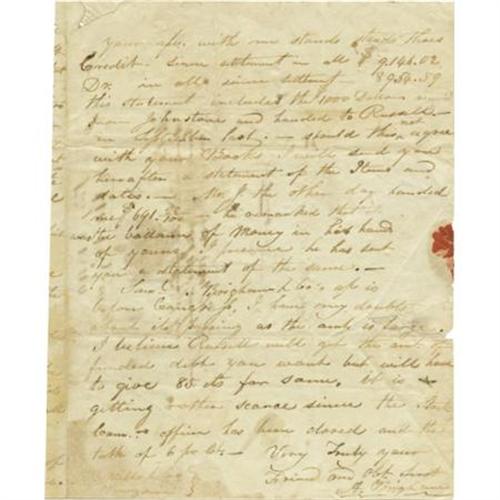 your a/c. with me stands thus
Credit. since settment in all $ 9146.02
Dr. in all since settmt 8984.89
this statement includes the 1000 Dollars
Johnstone and handed to Russell
in last. — should this not agree
with your Books I will send you
hereafter a statement of the Items and
dates. — Mr J the other day handed
me $ 691. he remarked that
was the ballance of Money in his hand
of yours I presume he has sent
you a statement of the same. —
Saml. Brigham & Co's a/c is
before Congress, I have my doubts
about its passing as the amt is large.
I believe Russell will get the amt of
funded debt you want but will have
to give 85 cts for same. it is
getting rather scarce since the
Loan office has been closed and the
talk of 6 pr Ct — Very Truly your
Friend and Obt Servt
Brigham